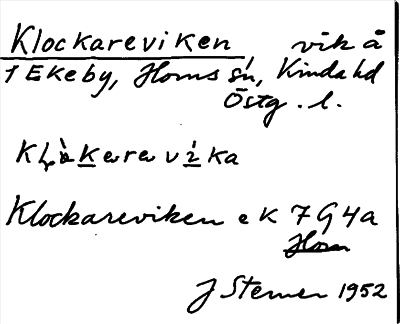 Klockareviken, vik å
1 Ekeby, Horns sn, Kinda hd
Östg. l.
Klockareviken ek 7G4a
Horn
J Sterner 1952